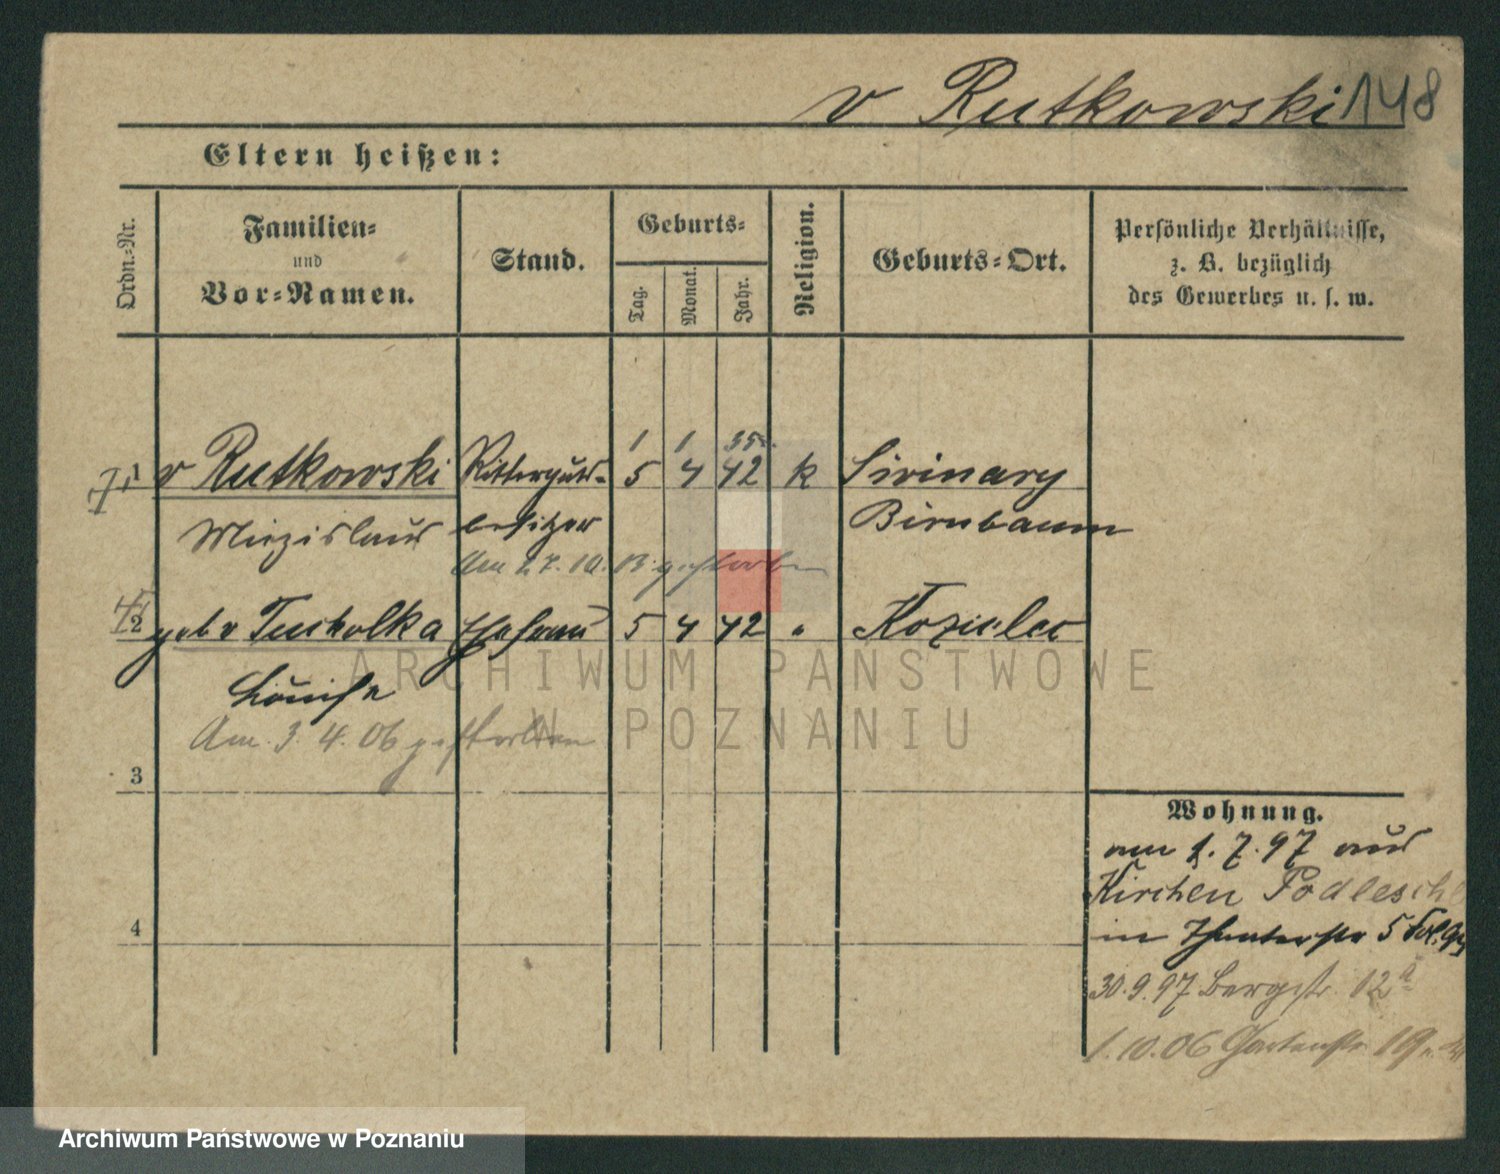 v Rutkowski 148
Eltern heißen:
Ordn.-Nr.
Familien-
und
Vor-Namen.
Stand.
Geburts-
Tag.
Monat.
Jahr.
Religion.
Geburts-Ort.
Persönliche Verhältnisse,
z. B. bezüglich
des Gewerbes u. s. w.
1 1 35
1 v Rutkowski Ritterguts- 5 4 42 k
Miezislaus besitzer Birnbaum
Am 27. 10. 13 gestorben
2 geb v Tucholka Ehefrau 5 4 42 " Kozielec
Louise
Am 3. 4. 06 gestorben
3
4
Wohnung.
am 1. 7. 97 aus
Kirchen Podlesche
in Theaterstr 5
30.9.97 Bergstr. 12a
1.10.06 Gartenstr 19
ARCHIWUM PAŃSTWOWE
W POZNANIU
Archiwum Państwowe w Poznaniu